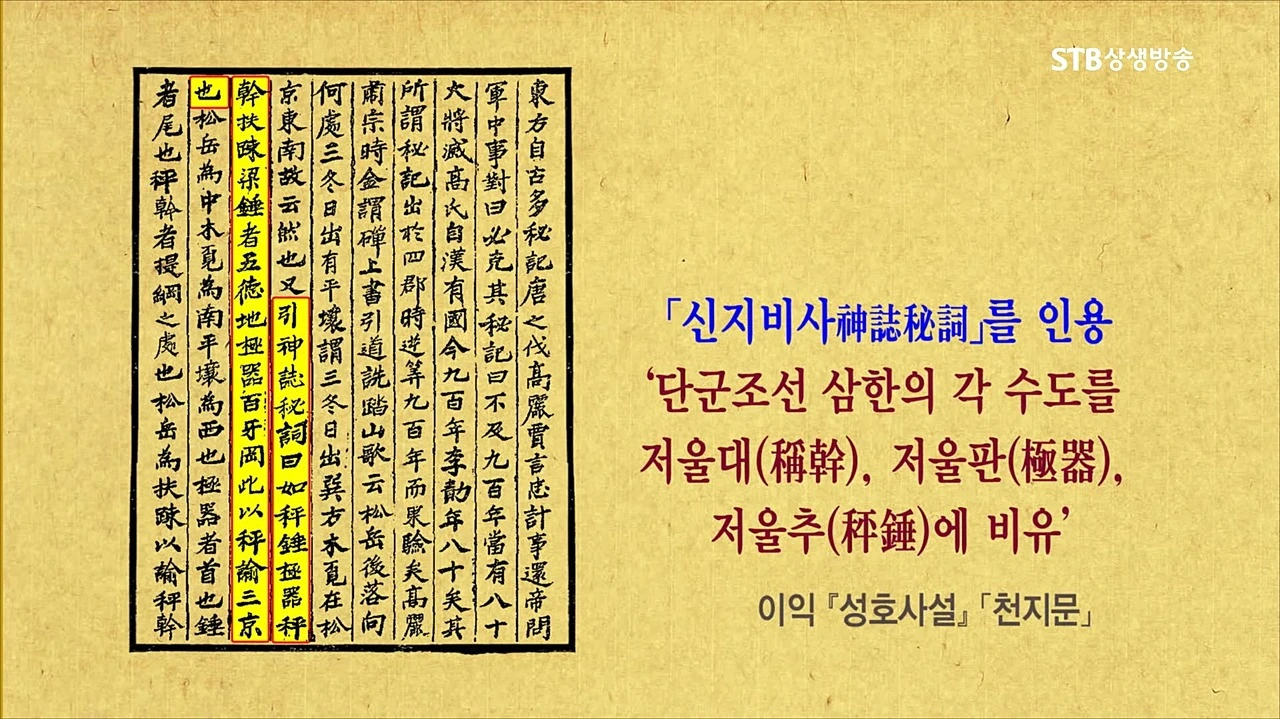 STB상생방송
東方自古多秘記唐之伐高麗賈言忠計事還帝問
軍中事對曰必克其秘記曰不及九百年當有八十
大將滅高氏自漢有國今九百年李勣年八十矣其
所謂秘記出於四郡時逆筭九百年而果驗矣高麗
肅宗時金謂磾上書引道詵踏山歌云松岳後落向
何處三冬日出有平壤謂三冬日出巽方木覓在松
京東南故云然也又引神誌秘詞曰如秤錘極器秤
幹扶踈梁錘者五德地極器百牙岡此以秤諭三京
也松岳為中木覓為南平壤為西也極器者首也錘
者尾也秤幹者提綱之處也松岳為扶踈以諭秤幹
「신지비사神誌秘詞」를 인용
‘단군조선 삼한의 각 수도를
저울대(稱幹), 저울판(極器),
저울추(秤錘)에 비유’
이익 『성호사설』 「천지문」